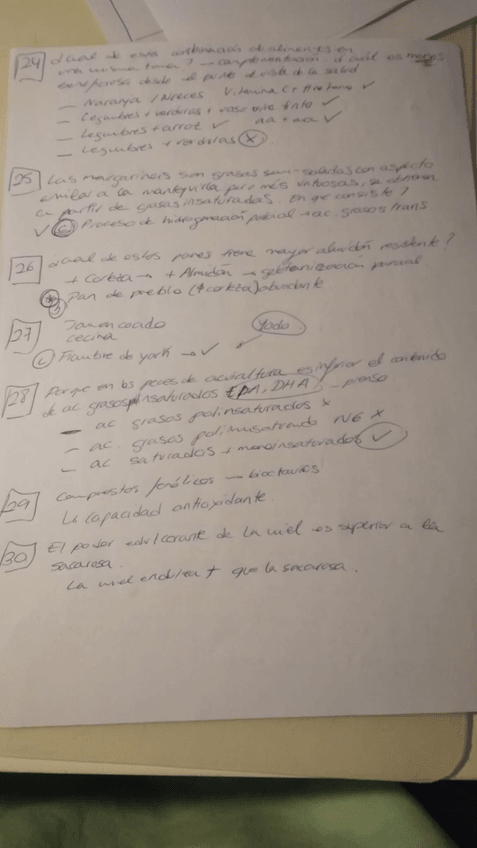 24 ¿Cuál de estas combinaciones de alimentos en
una misma toma? → complementación. ¿Cuál es menos
beneficiosa desde el punto de vista de la salud
— Naranja / Nueces Vitamina C + ✓
— Legumbres + verduras + vaso vino tinto ✓
— Legumbres + arroz ✓ aa + aa ✓
— Legumbres + verduras X
25 Las margarinas son grasas semi-solidas con aspecto
similar a la mantequilla pero más untuosas, se obtienen
a partir de grasas insaturadas. En que consiste?
✓ C Proceso de hidrogenación parcial → ac. grasos trans
26 ¿Cual de estos panes tiene mayor almidón resistente?
+ Corteza → + Almidón → gelatinización parcial
Pan de pueblo (↑ corteza) abundante
27 Jamon cocido
cecina
C Fiambre de york → ✓
Yodo
28 Porque en los peces de acuicultura es inferior el contenido
de ac grasos poliinsaturados EPA, DHA → pienso
— ac grasos polinsaturados X
— ac. grasos polinsaturado N6 X
— ac saturados + monoinsaturados ✓
29 Compuestos fenólicos — bioactivos
↳ Capacidad antioxidante
30 El poder edulcorante de la miel es superior a la
sacarosa.
La miel endulza + que la sacarosa.